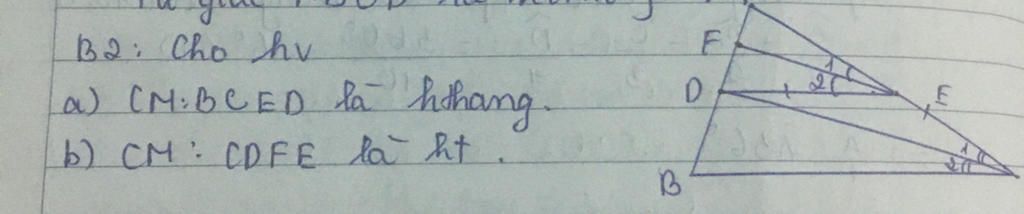 B2: Cho hv
a) CM: BCED là hthang.
b) CM: CDFE là ht.
F
D
E
B
1
2
1
2